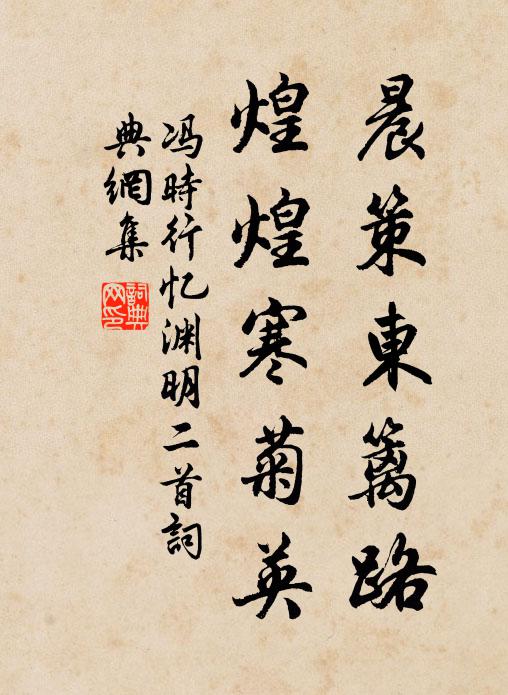 晨策東籬路
煌煌寒菊英
冯時行忆渊明二首詞
典網集
詞典网印